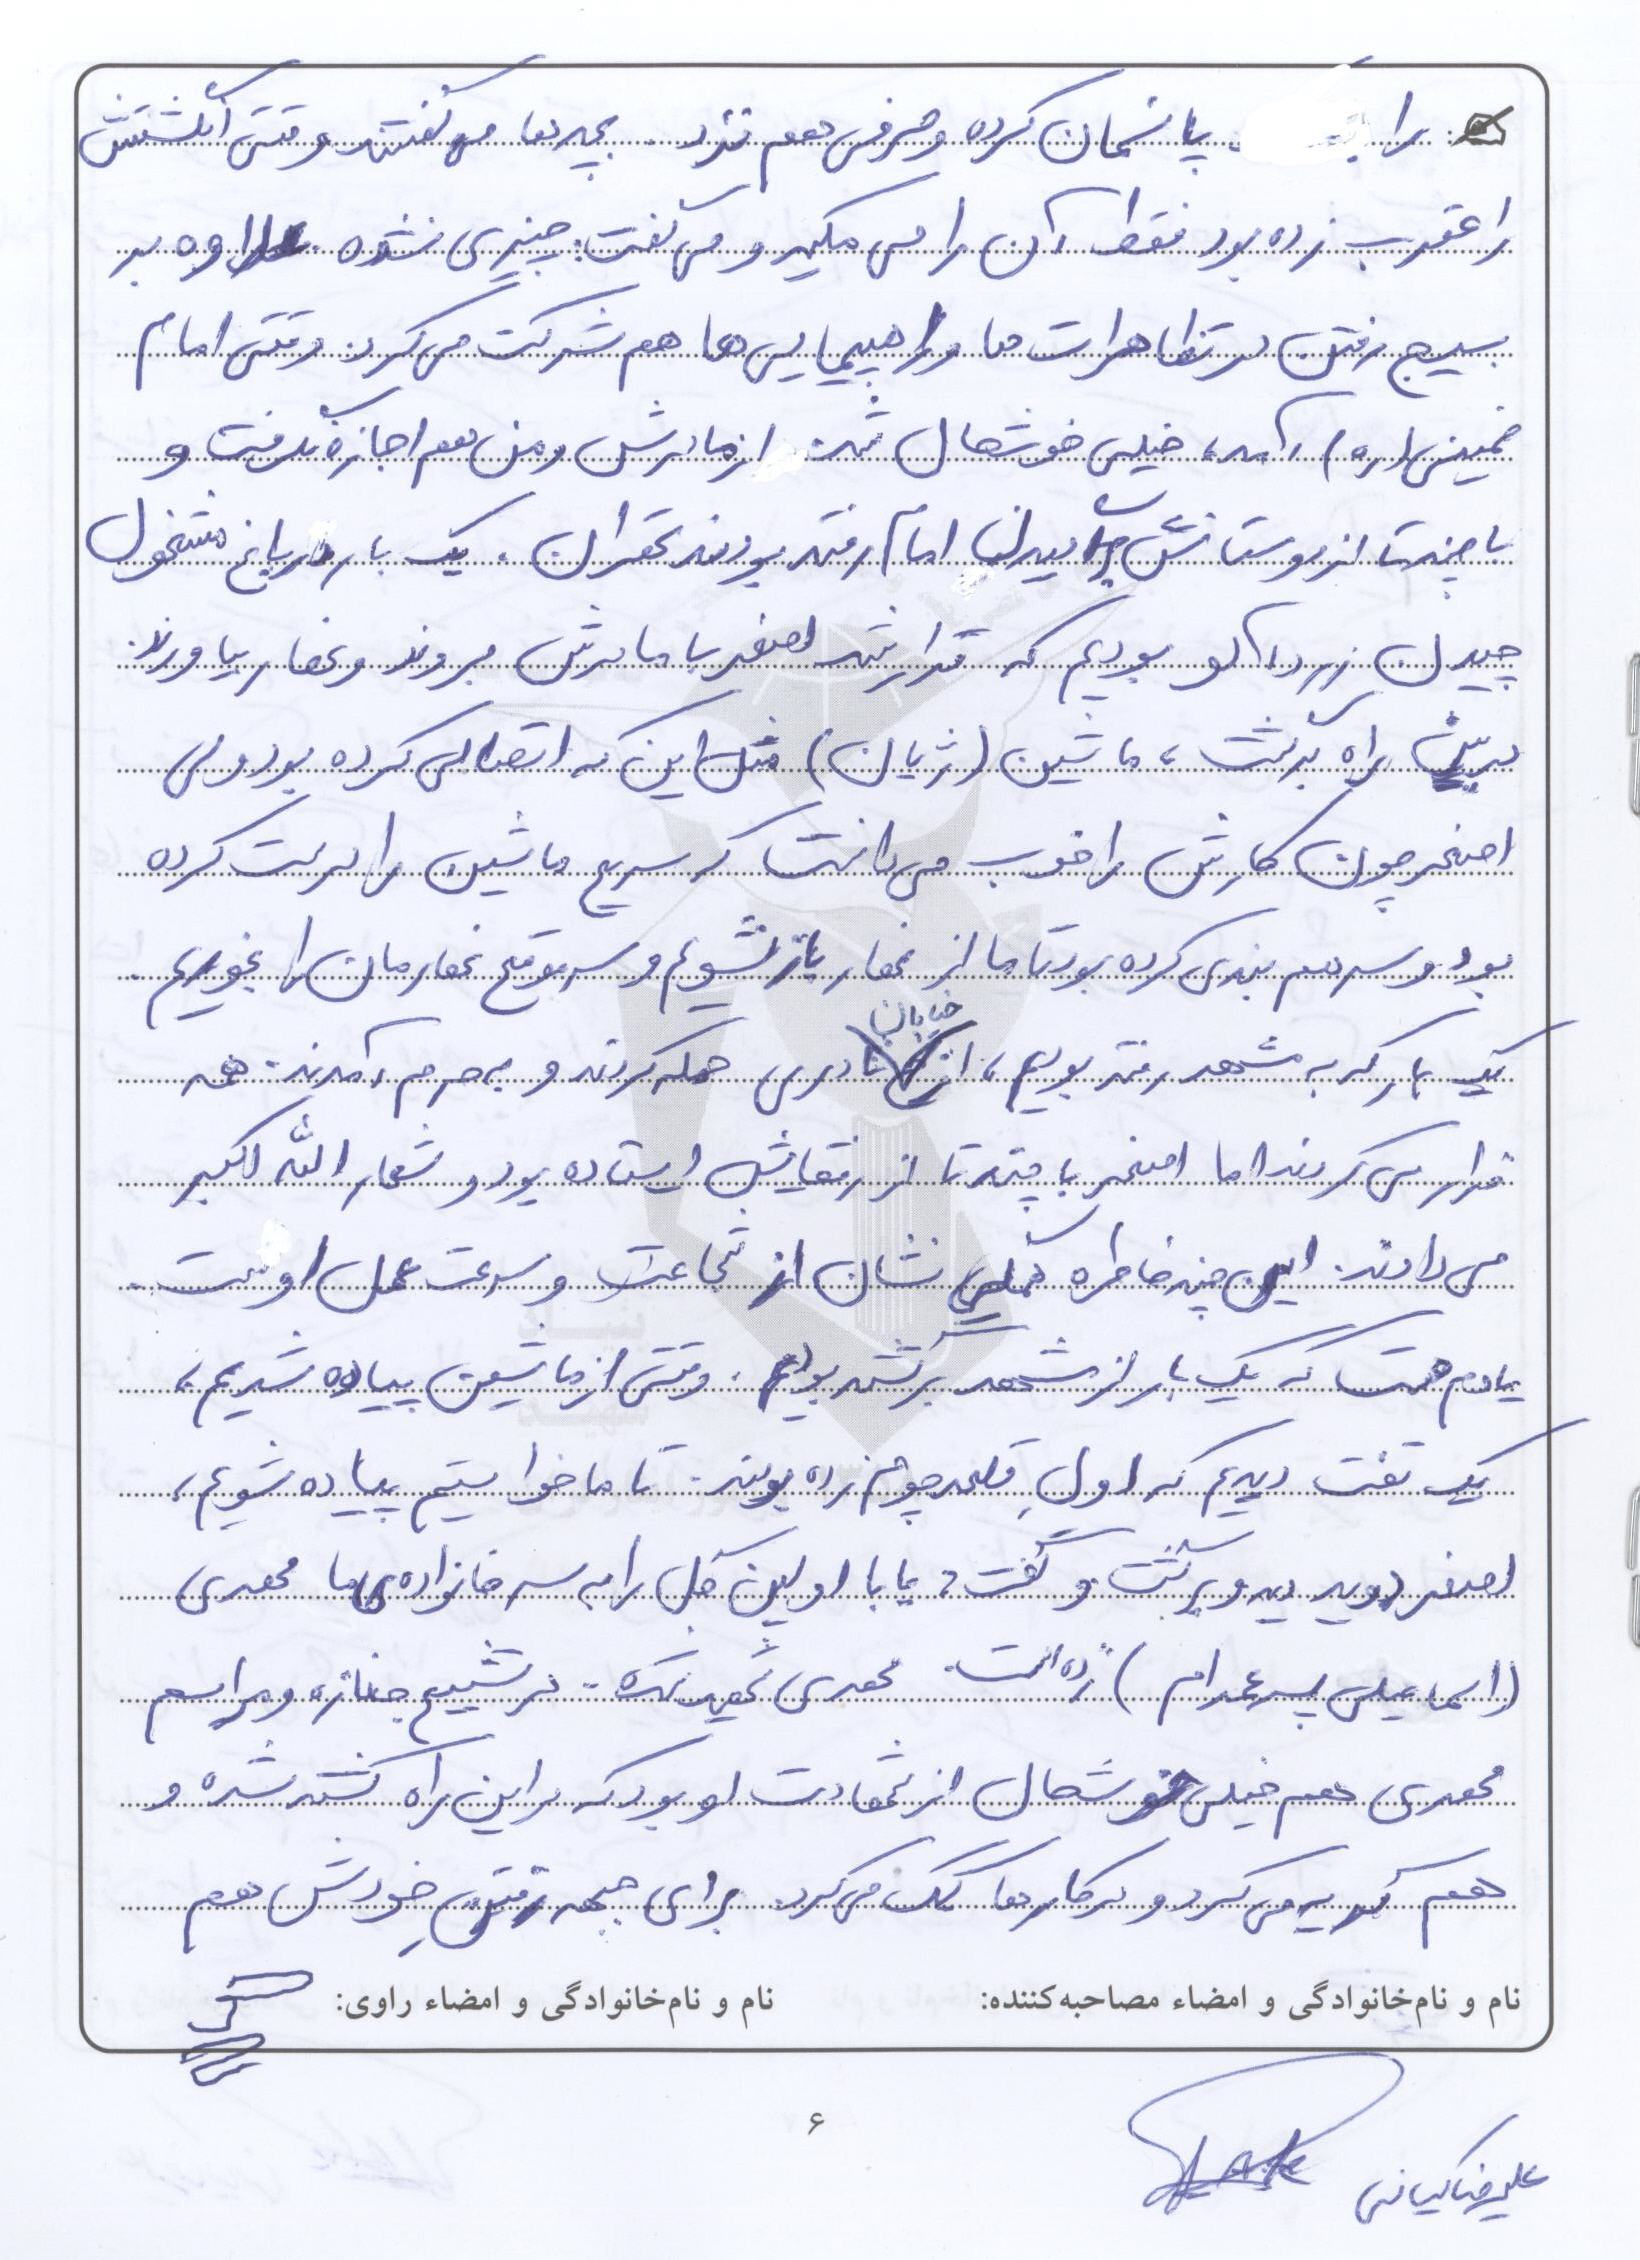 را پانسمان کرده و حرفی هم نزد. بچه‌ها می‌گفتند وقتی انگشتش
را عقرب زده بود فقط آن را می‌مکید و می‌گفت: چیزی نشده. علاوه بر
بسیج رفتن در تظاهرات ها و راهپیمایی‌ها هم شرکت می‌کرد. وقتی امام
خمینی (ره) آمد، خیلی خوشحال شد. از مادرش و من هم اجازه گرفت و
با چندتا از دوستانش به دیدن امام رفته بودند تهران. یک بار در باغ مشغول
چیدن زردآلو بودیم که قرار شد اصغر با مادرش بروند و نهار بیاورند.
در بین راه برگشت، ماشین (ژیان) مثل این که اتصالی کرده بود ولی
اصغر چون کارش را خوب می‌دانست که سریع ماشین را درست کرده
بود و سر هم بندی کرده بود تا ما از نهار باز نشویم و سر موقع نهارمان را بخوریم.
یک بار که به مشهد رفته بودیم، از خیابان نادری حمله کردند و به حرم آمدند. همه
فرار می‌کردند اما اصغر با چند تا از رفقایش ایستاده بود و شعار الله اکبر
می‌دادند. این چند خاطره همگی نشان از شجاعت و سرعت عمل اوست.
یادم هست که یک بار از مشهد برگشته بودیم. وقتی از ماشین پیاده شدیم،
یک تفت دیدیم که اول قلعه چوم زده بودند. تا ما خواستیم پیاده شویم،
اصغر دوید دید و برگشت و گفت: بابا اولین گل را به سر خانواده‌ی ما مهدی
(اسماعیلی پسر عمه‌ام) زده است. مهدی شهید شده. در تشییع جنازه و مراسم
مهدی هم خیلی خوشحال از شهادت او بود که در این راه کشته شده و
هم گریه می‌کرد و در کارها کمک می‌کرد. برای جبهه رفتن خودش هم
نام و نام‌خانوادگی و امضاء مصاحبه‌کننده: نام و نام‌خانوادگی و امضاء راوی:
۶
علیرضا کیانی